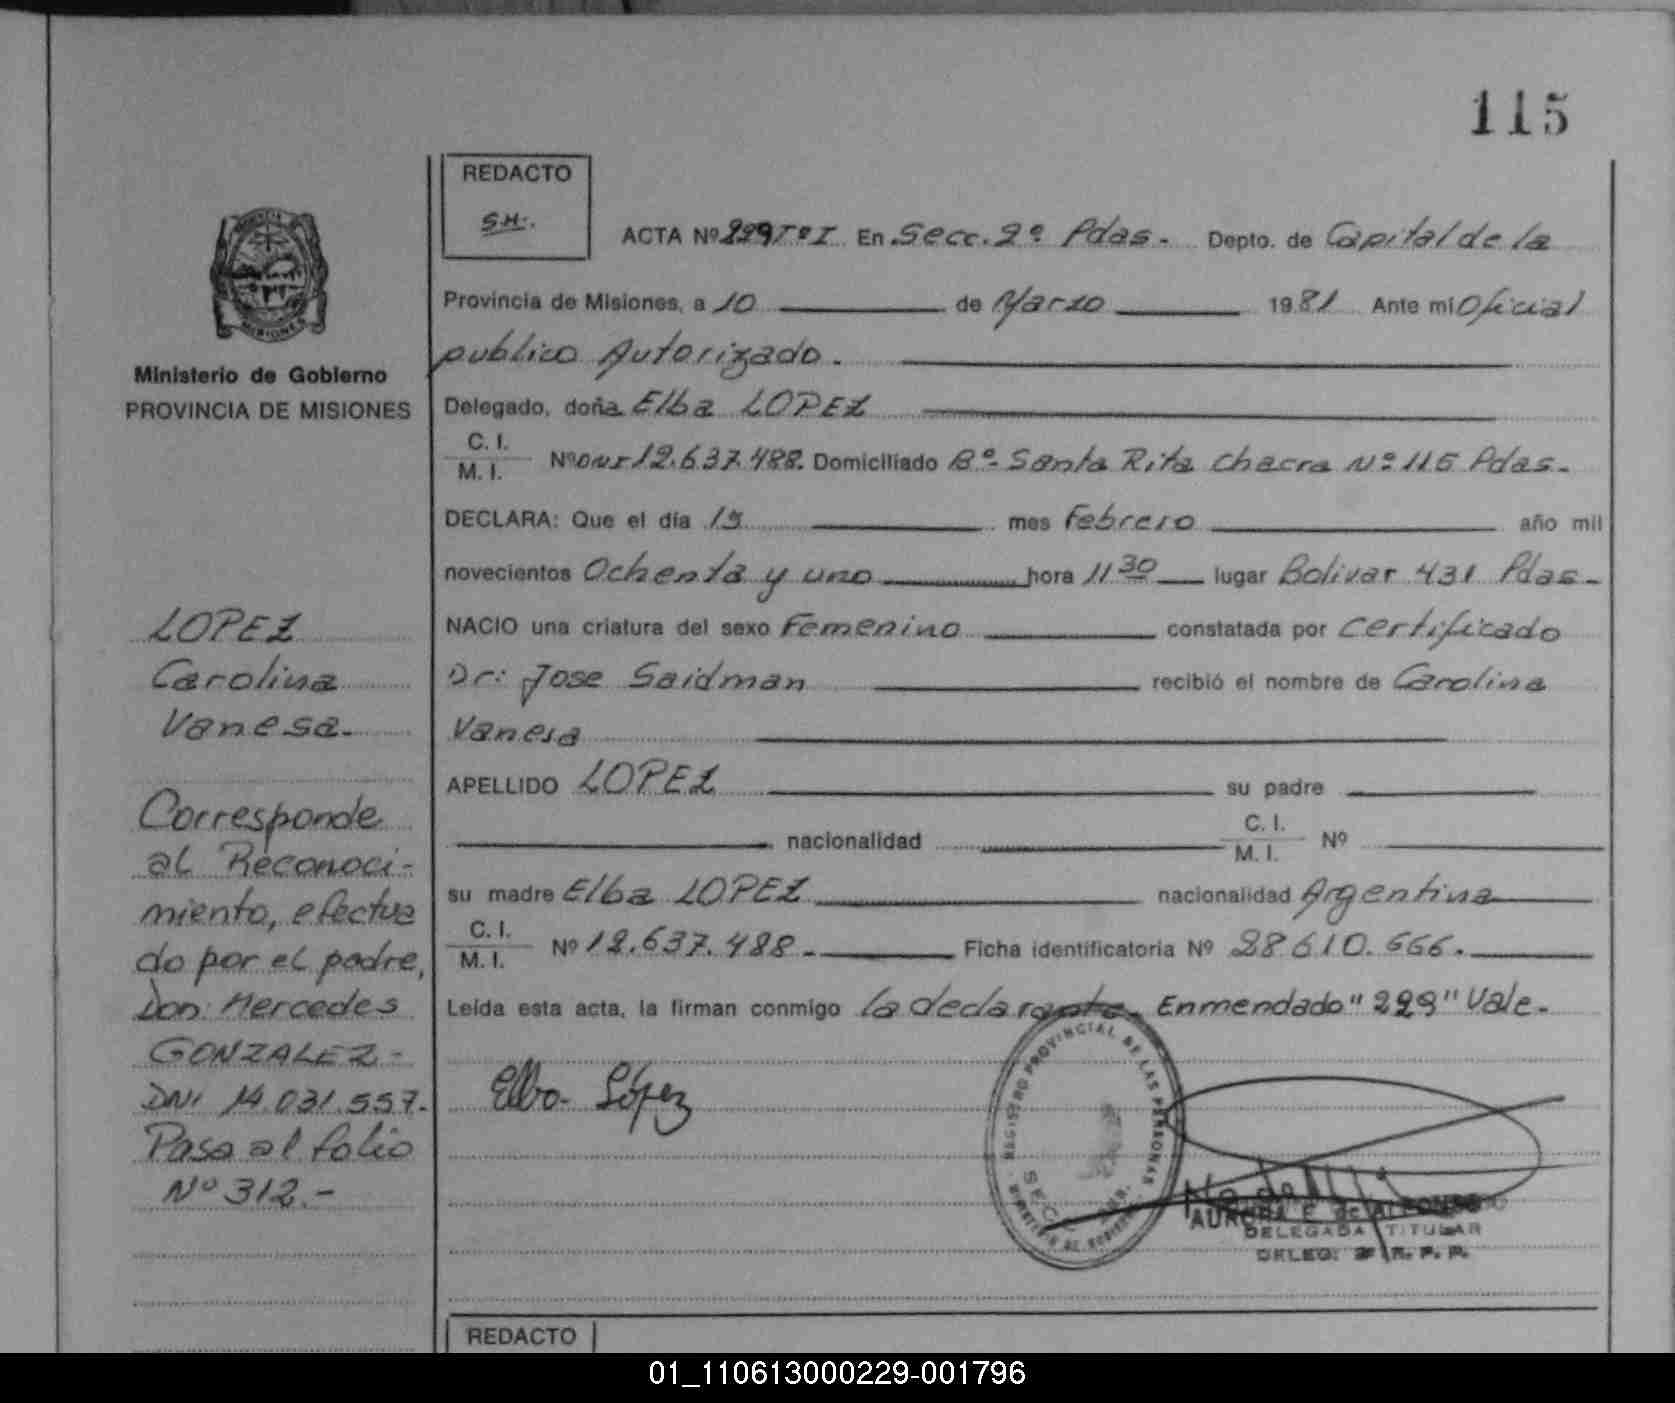 115
REDACTO
S.H.
ACTA Nº 229 Tº I En Secc. 2º Pdas. Depto. de Capital de la
Provincia de Misiones, a 10 de Marzo 1981 Ante mi Oficial
publico Autorizado.
Delegado, doña Elba LOPEZ
C. I.
M. I. Nº DNI 12.637.488. Domiciliado Bº Santa Rita Chacra Nº 115 Pdas.
DECLARA: Que el día 19 mes Febrero año mil
novecientos Ochenta y uno hora 11 30 lugar Bolivar 431 Pdas.
NACIO una criatura del sexo Femenino constatada por Certificado
Dr: Jose Saidman recibió el nombre de Carolina
Vanesa
APELLIDO LOPEZ su padre
nacionalidad C. I.
M. I. Nº
su madre Elba LOPEZ nacionalidad Argentina
C. I.
M. I. Nº 12.637.488. Ficha identificatoria Nº 28610.666.
Leída esta acta, la firman conmigo la declarante. Enmendado "229" Vale.
Elba López
REGISTRO PROVINCIAL DE LAS PERSONAS
AURORA E. de ALFONSO
DELEGADA TITULAR
DELEG. 2ª R. P. P.
MISIONES
Ministerio de Gobierno
PROVINCIA DE MISIONES
LOPEZ
Carolina
Vanesa.
Corresponde
al Reconoci-
miento, efectua
do por el padre,
Don: Mercedes
GONZALEZ-
DNI 14.031.557.
Pasa al folio
Nº 312.-
REDACTO
01_110613000229-001796